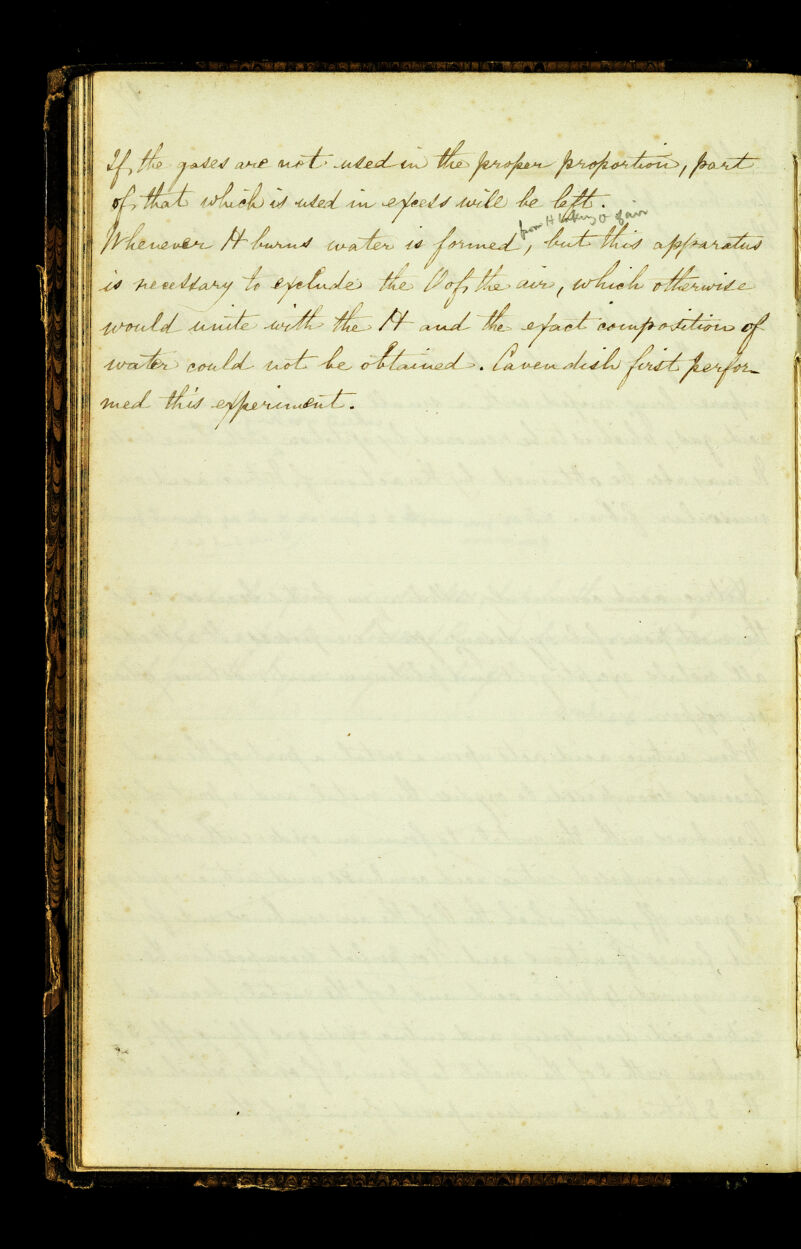 If the gases are not used in the proper proportion, part
of that which is used in excess will be left.
from H taking O of air
Whenever H burns water is formed, but this apparatus
is necessary to exclude the O of the air, which otherwise
would unite with the H and the exact composition of
water could not be obtained. Cavendish first perfor-
med this experiment.